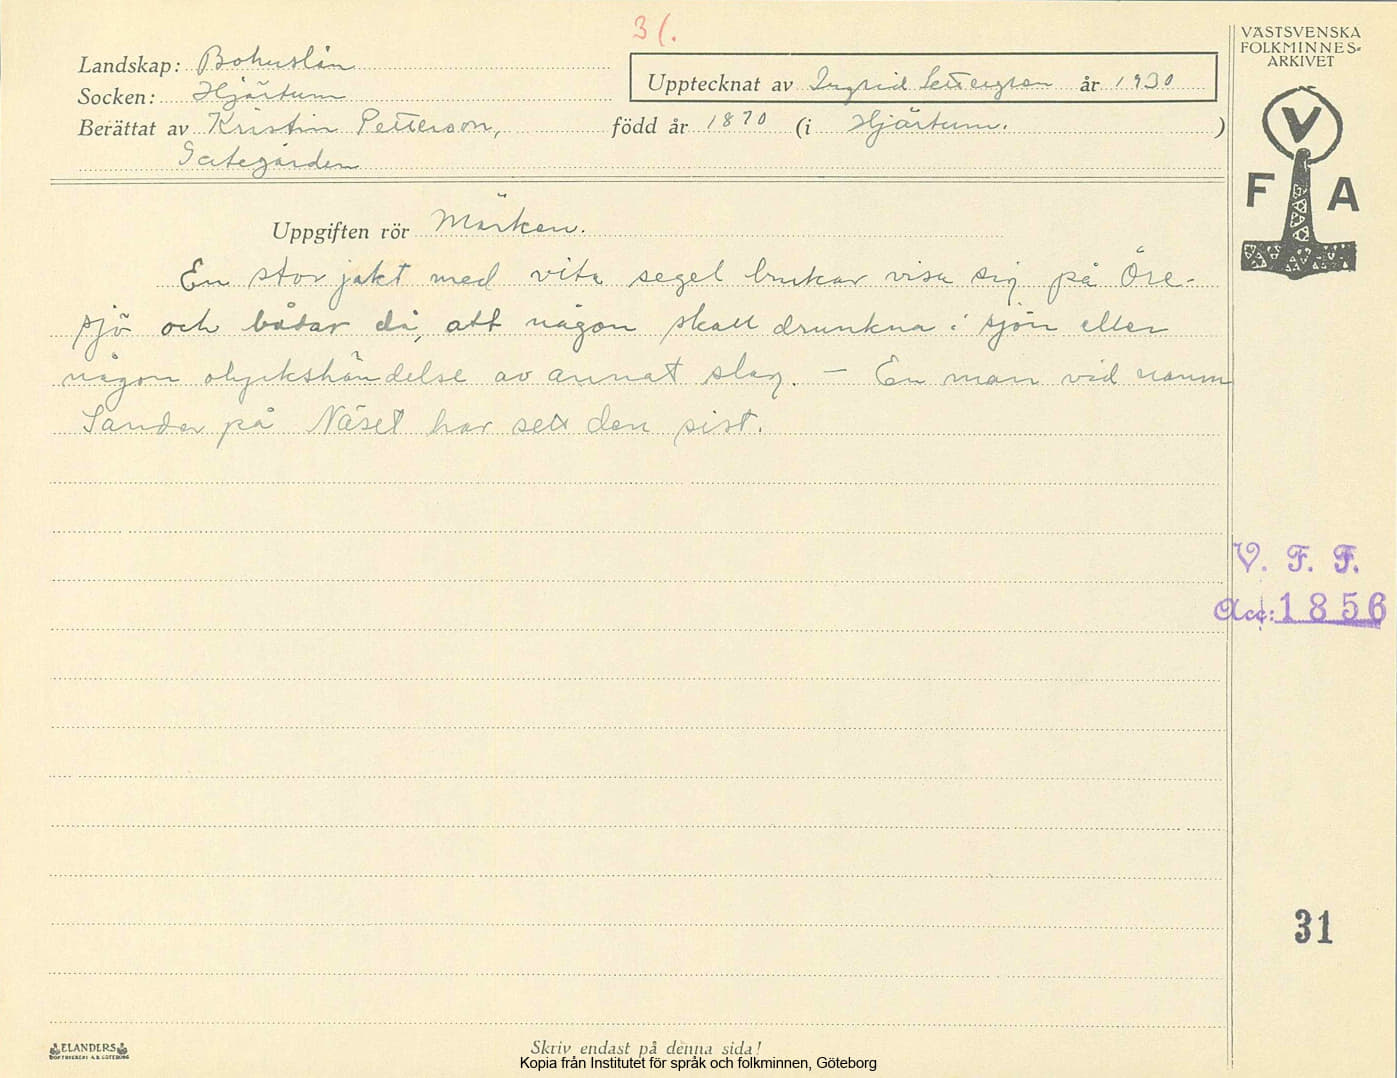 31.
Landskap: Bohuslän
Socken: Hjärtum
Upptecknat av Ingrid Settergren år 1930
Berättat av Kristin Petterson, född år 1870 (i Hjärtum. )
Gategården
Uppgiften rör Märken.
En stor jakt med vita segel brukar visa sig på Öre-
sjö och bådar då, att någon skall drunkna i sjön eller
någon olyckshändelse av annat slag. – En man vid namn
Sander på Näset har sett den sist.
VÄSTSVENSKA
FOLKMINNES-
ARKIVET
V
F A
V. F. F.
Acc: 1856
31
ELANDERS
BOKTRYCKERI A.B. GÖTEBORG
Skriv endast på denna sida!
Kopia från Institutet för språk och folkminnen, Göteborg